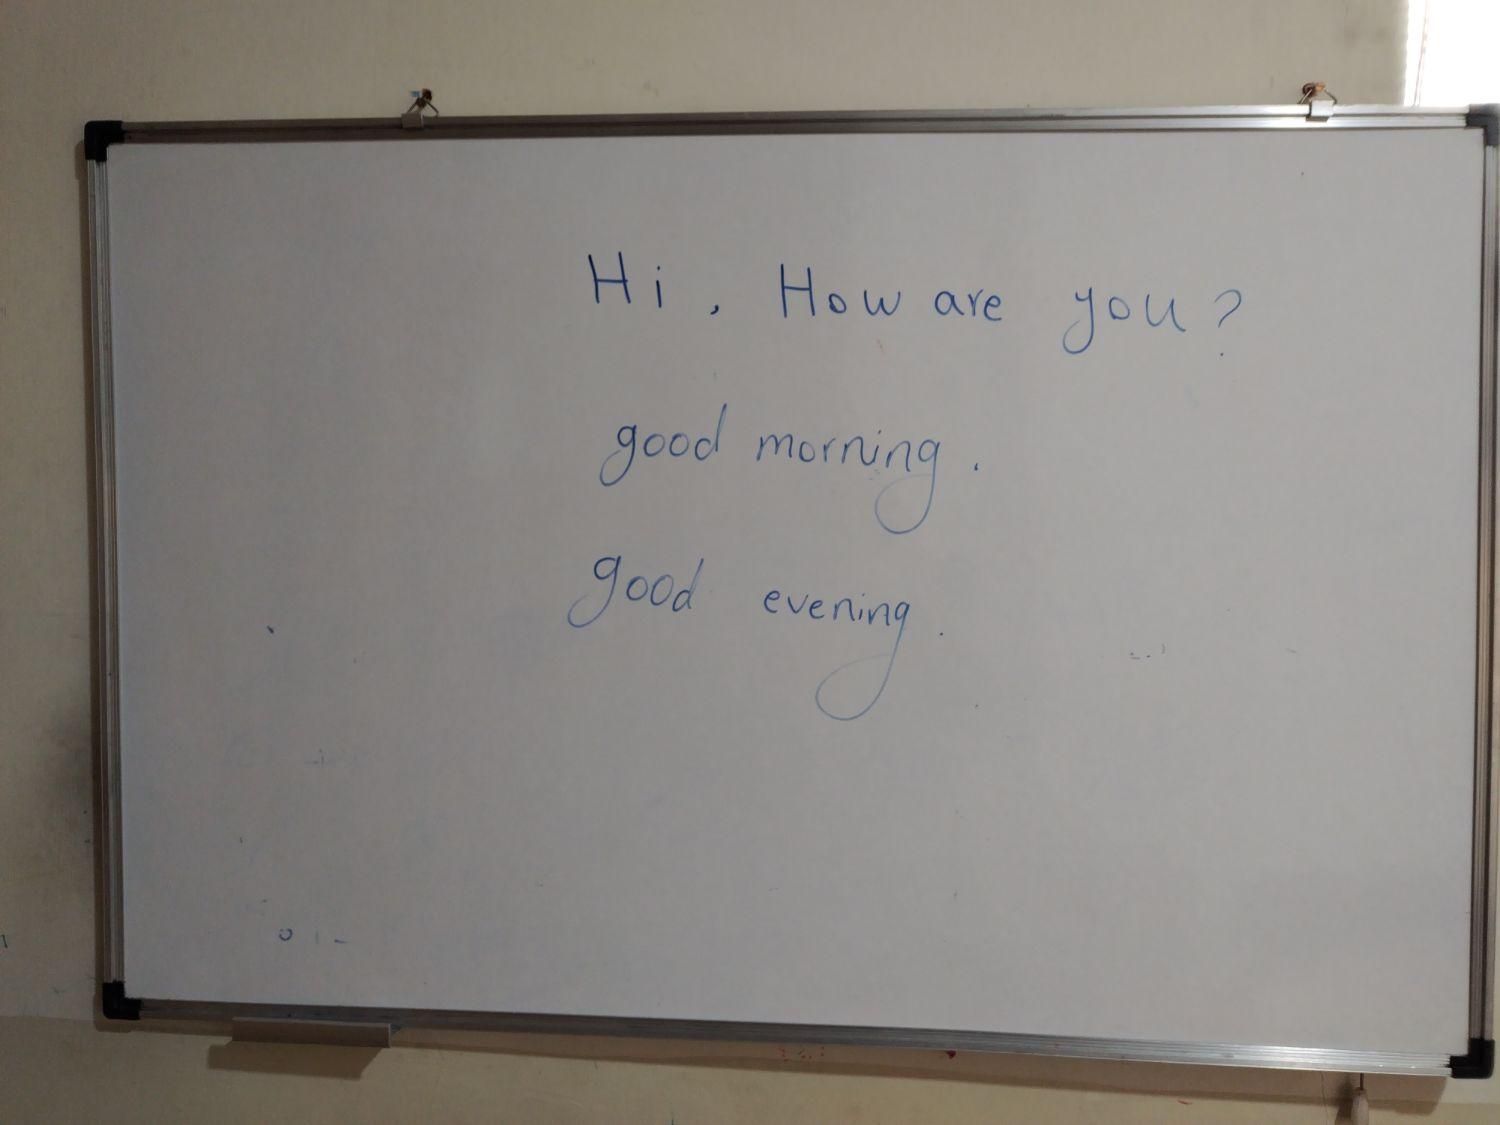 Hi, How are you?
good morning.
good evening.